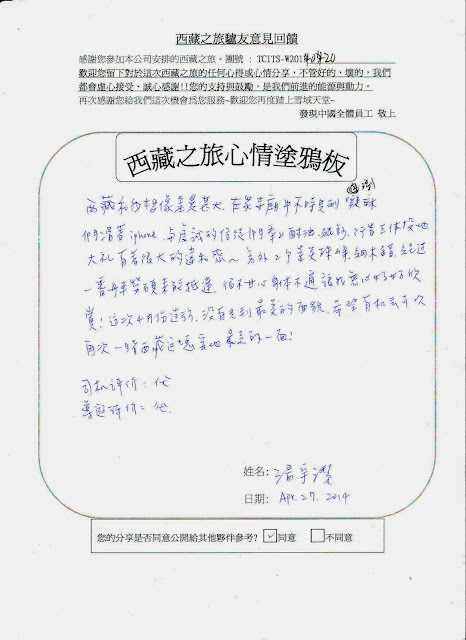 西藏之旅驢友意見回饋
感謝您參加本公司安排的西藏之旅。團號：TCITS-W20140420
歡迎您留下對於這次西藏之旅的任何心得或心情分享，不管好的，壞的，我們
都會虛心接受，誠心感謝!!您的支持與鼓勵，是我們前進的能源與動力。
再次感謝您給我們這次機會為您服務~歡迎您再度踏上雪域天堂~
發現中國全體員工 敬上
西藏之旅心情塗鴉板
西藏和我想像差異甚大, 在眾寺廟中不時見到
們滑著iphone, 與虔誠的信徒們奉上酥油、五体投地
大礼有著很大的違和感~ 另外2個 珠峰、納木錯, 經過
一番舟車勞頓 能抵達, 身体不適讓我無以好好欣
賞! 這次4月份造訪, 沒有見到最美的西藏, 希望有机會可以
再次一睹西藏這塊寶地最美的一面!
司机評价：优
導遊評价：优
姓名:
日期: Apr. 27. 2014
您的分享是否同意公開給其他夥伴參考? ☑同意 □不同意